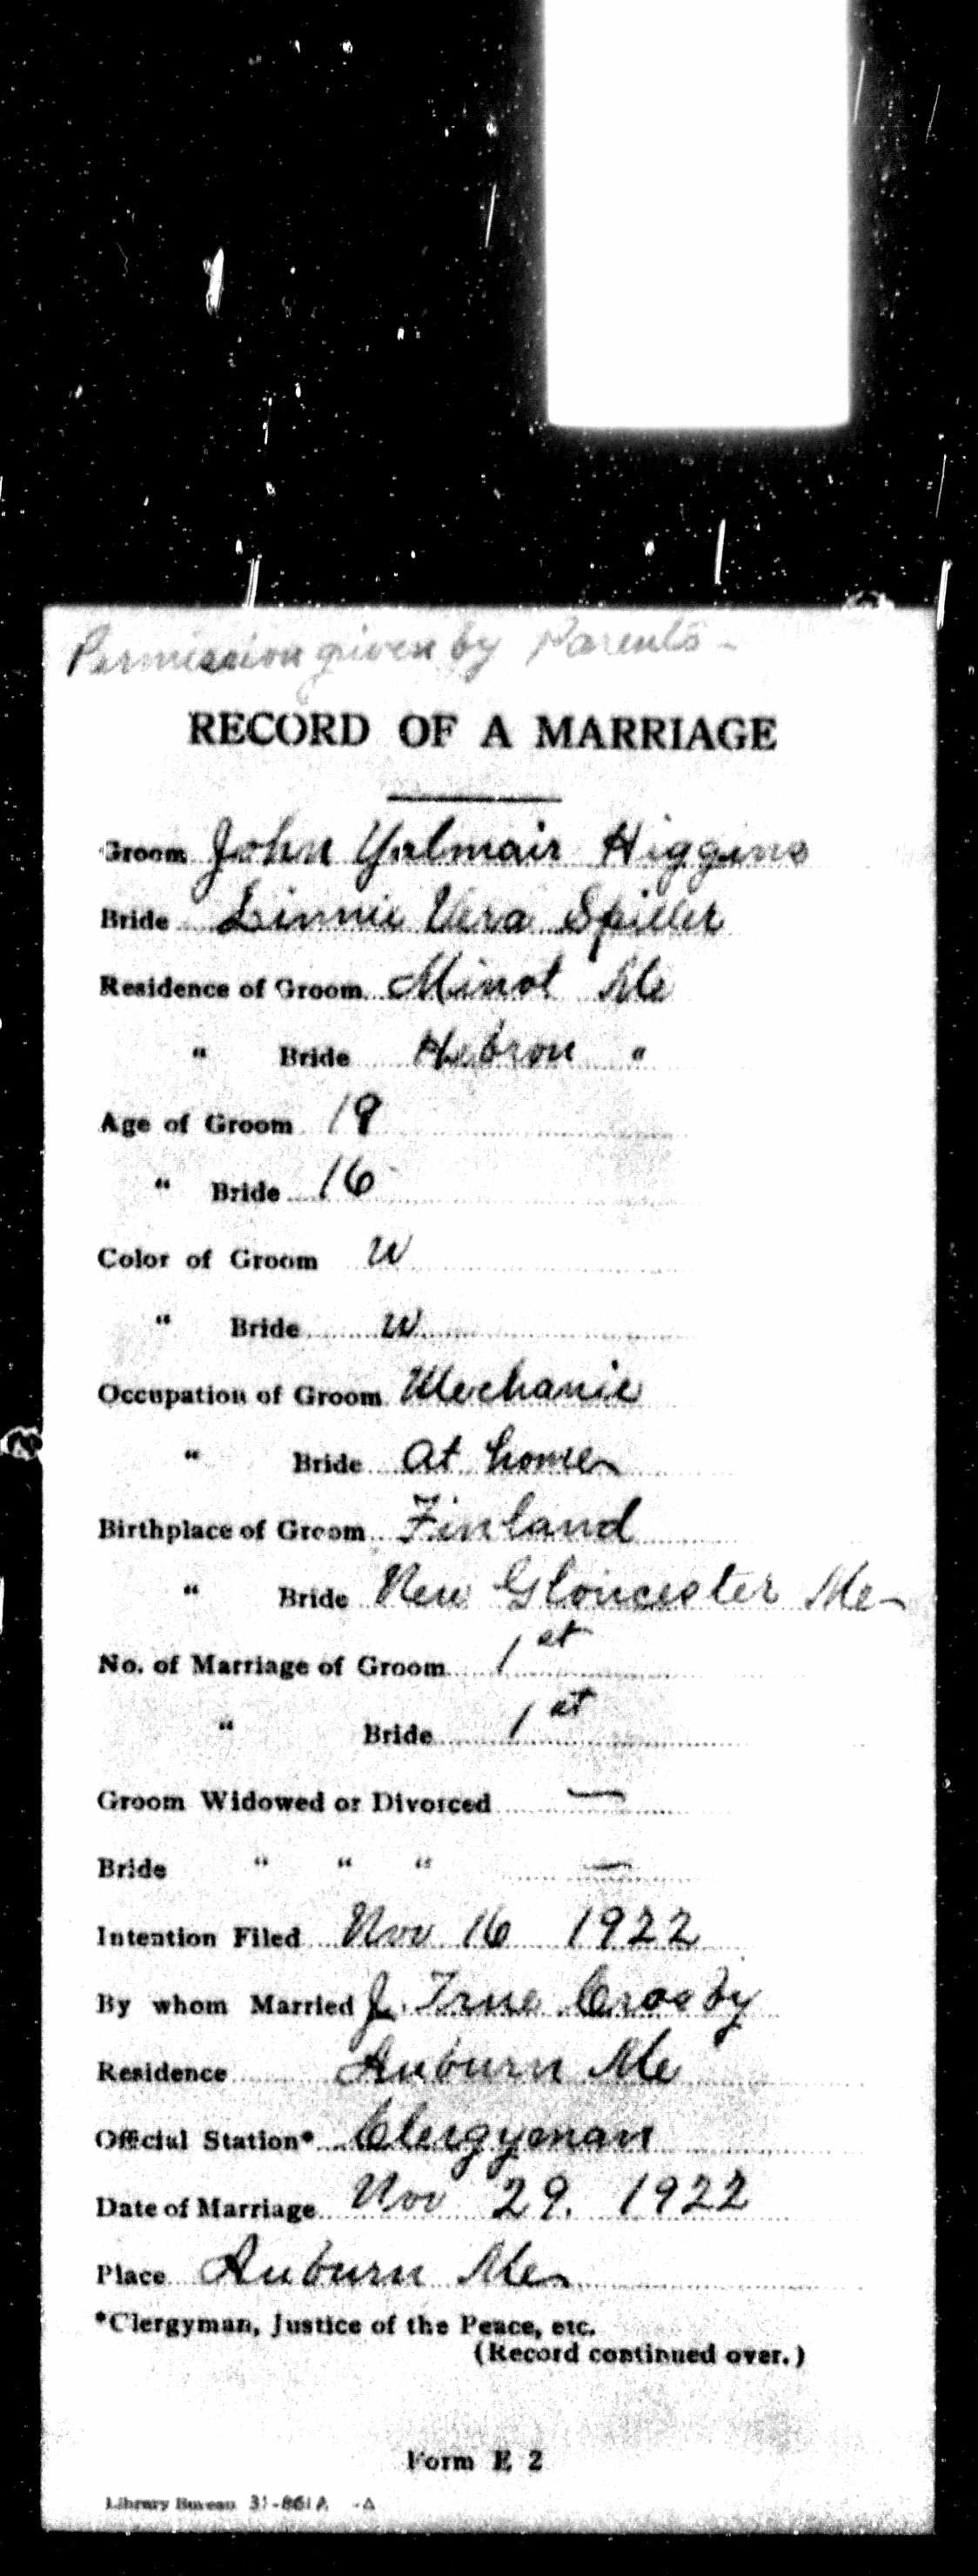 Permission given by Parents -
RECORD OF A MARRIAGE
Groom John Yalmair Higgins
Bride Linnie Vera Spiller
Residence of Groom Minot Me
" Bride Hebron "
Age of Groom 19
" Bride 16
Color of Groom W
" Bride W
Occupation of Groom Mechanic
" Bride At home
Birthplace of Groom Finland
" Bride New Gloucester Me
No. of Marriage of Groom 1st
" Bride 1st
Groom Widowed or Divorced —
Bride " " " —
Intention Filed Nov 16 1922
By whom Married J. True Crosby
Residence Auburn Me
Official Station* Clergyman
Date of Marriage Nov 29. 1922
Place Auburn Me
*Clergyman, Justice of the Peace, etc.
(Record continued over.)
Form E 2
Library Bureau 31-861A -A